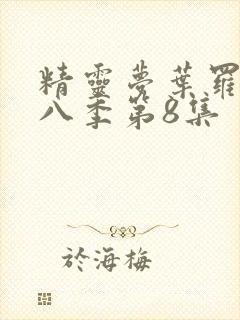 精靈夢葉羅
八季第8集
於海梅